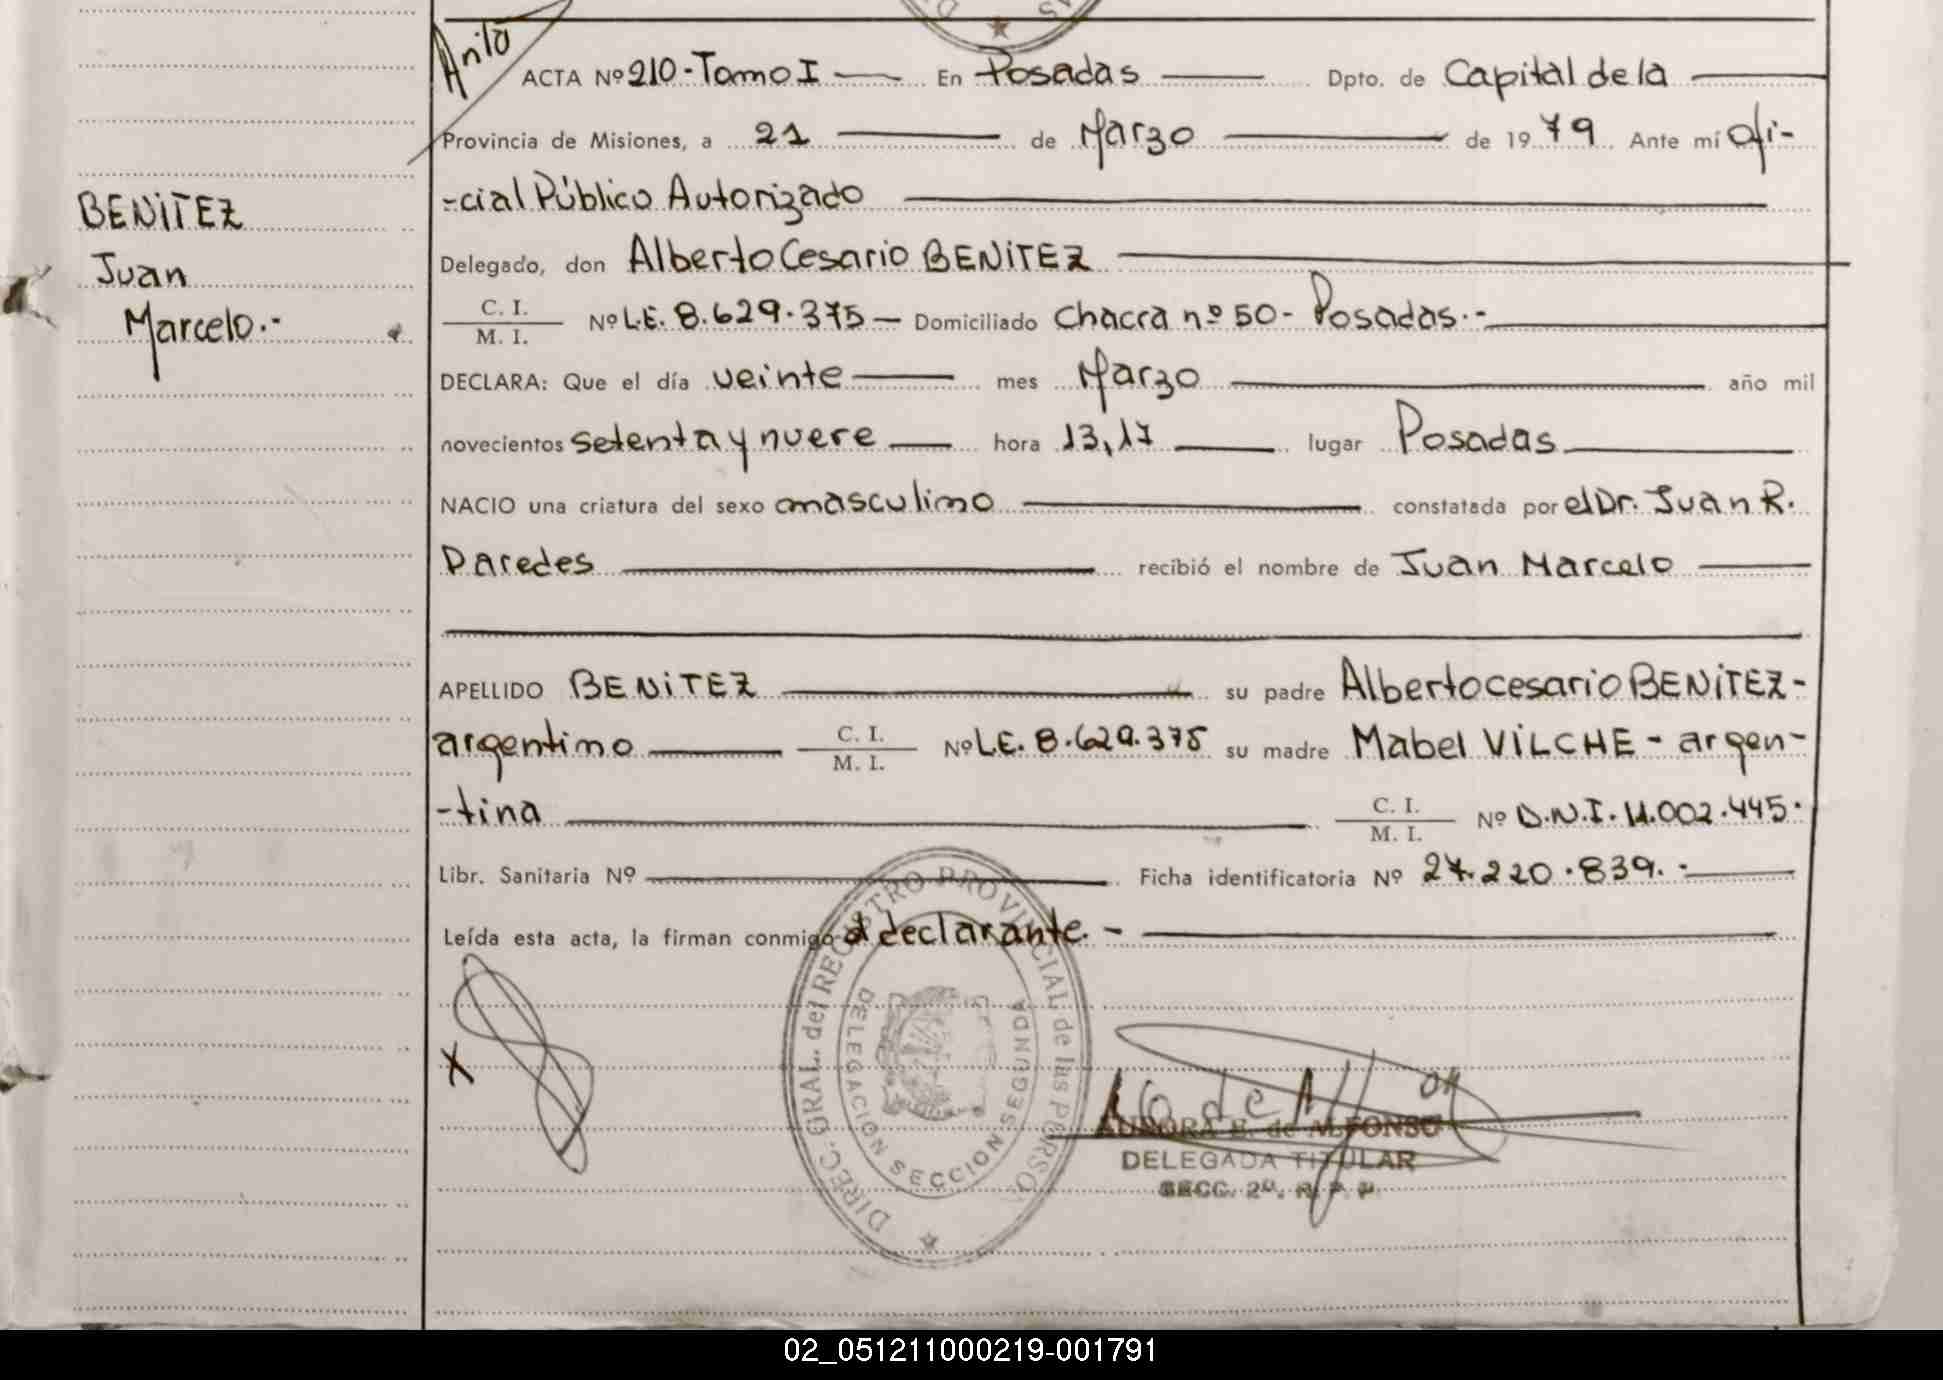 Anito
ACTA Nº 210-Tomo I En Posadas Dpto. de Capital de la
Provincia de Misiones, a 21 de Marzo de 1979 Ante mí ofi-
-cial Público Autorizado
BENITEZ
Juan
Marcelo.-
Delegado, don Alberto Cesario BENITEZ
C. I.
M. I.
Nº L.E. 8.629.375 Domiciliado Chacra nº 50- Posadas.-
DECLARA: Que el día veinte mes Marzo año mil
novecientos setenta y nueve hora 13,17 lugar Posadas
NACIO una criatura del sexo masculino constatada por el Dr. Juan R.
Paredes recibió el nombre de Juan Marcelo
APELLIDO BENITEZ su padre Alberto cesario BENITEZ-
argentino C. I. M. I. Nº L.E. 8.629.375 su madre Mabel VILCHE - argen-
-tina C. I. M. I. Nº D.N.I. 11.002.445.
Libr. Sanitaria Nº Ficha identificatoria Nº 27.220.839.-
Leída esta acta, la firman conmigo el declarante.-
X
DIREC. GRAL. del REGISTRO PROVINCIAL de las PERSO
DELEGACION SECCION SEGUNDA
AURORA E. de ALFONSO
DELEGADA TITULAR
SECC. 2ª. R. P. P.
02_051211000219-001791